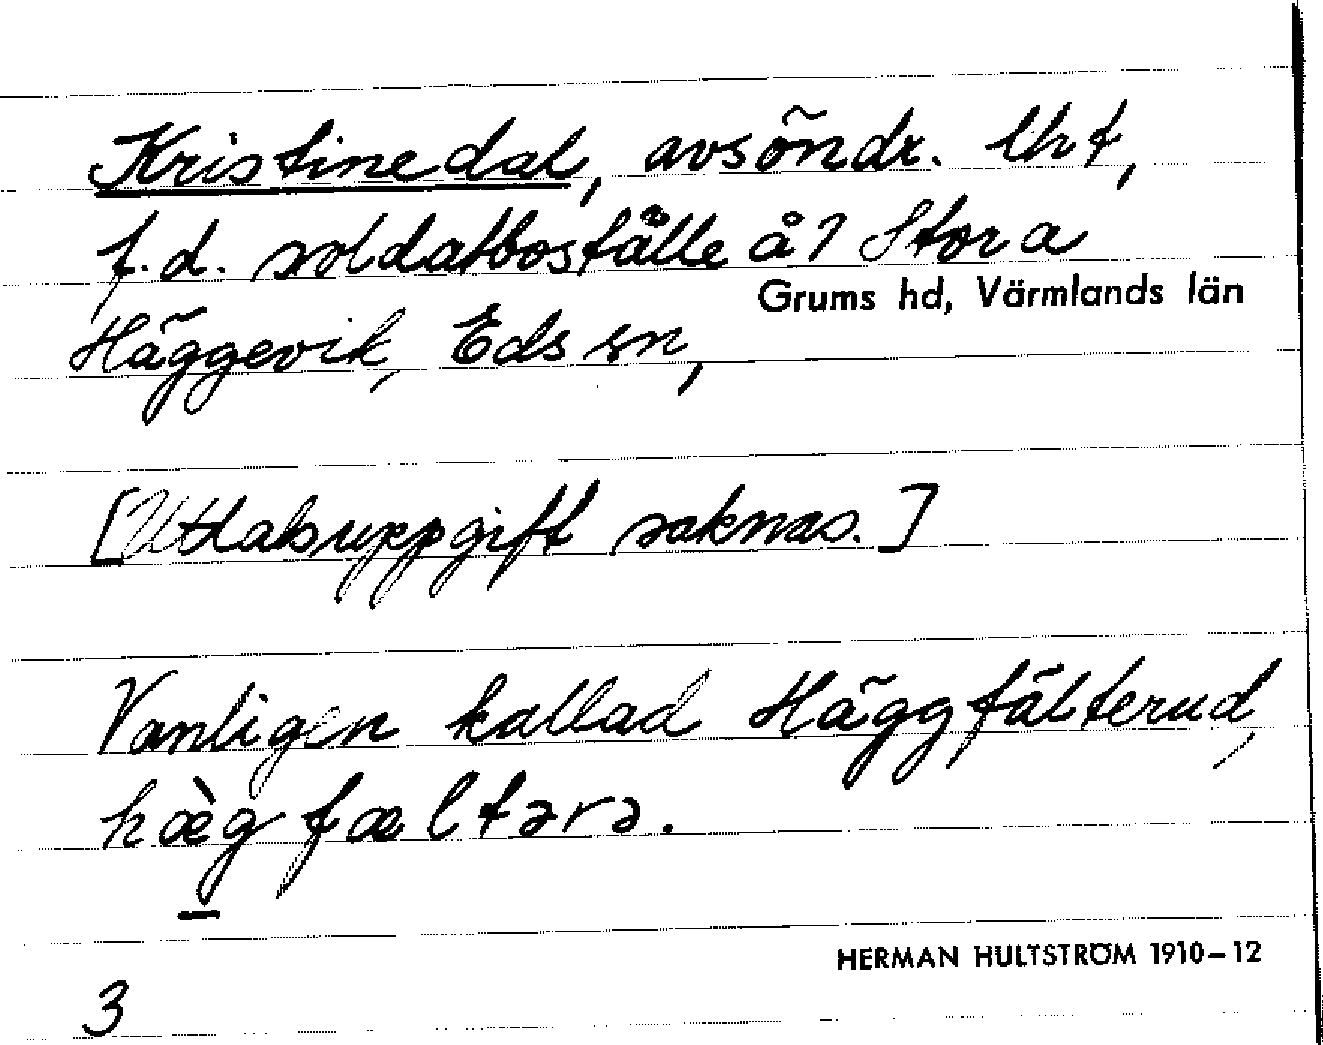 Kristinedal, avsöndr. lht,
f.d. soldatboställe å 1 Stora
Grums hd, Värmlands län
Häggevik, Eds sn,
[Uttalsuppgift saknas.]
Vanligen kallad Häggfälterud,
hæ̀g fæltərə.
HERMAN HULTSTRÖM 1910–12
3